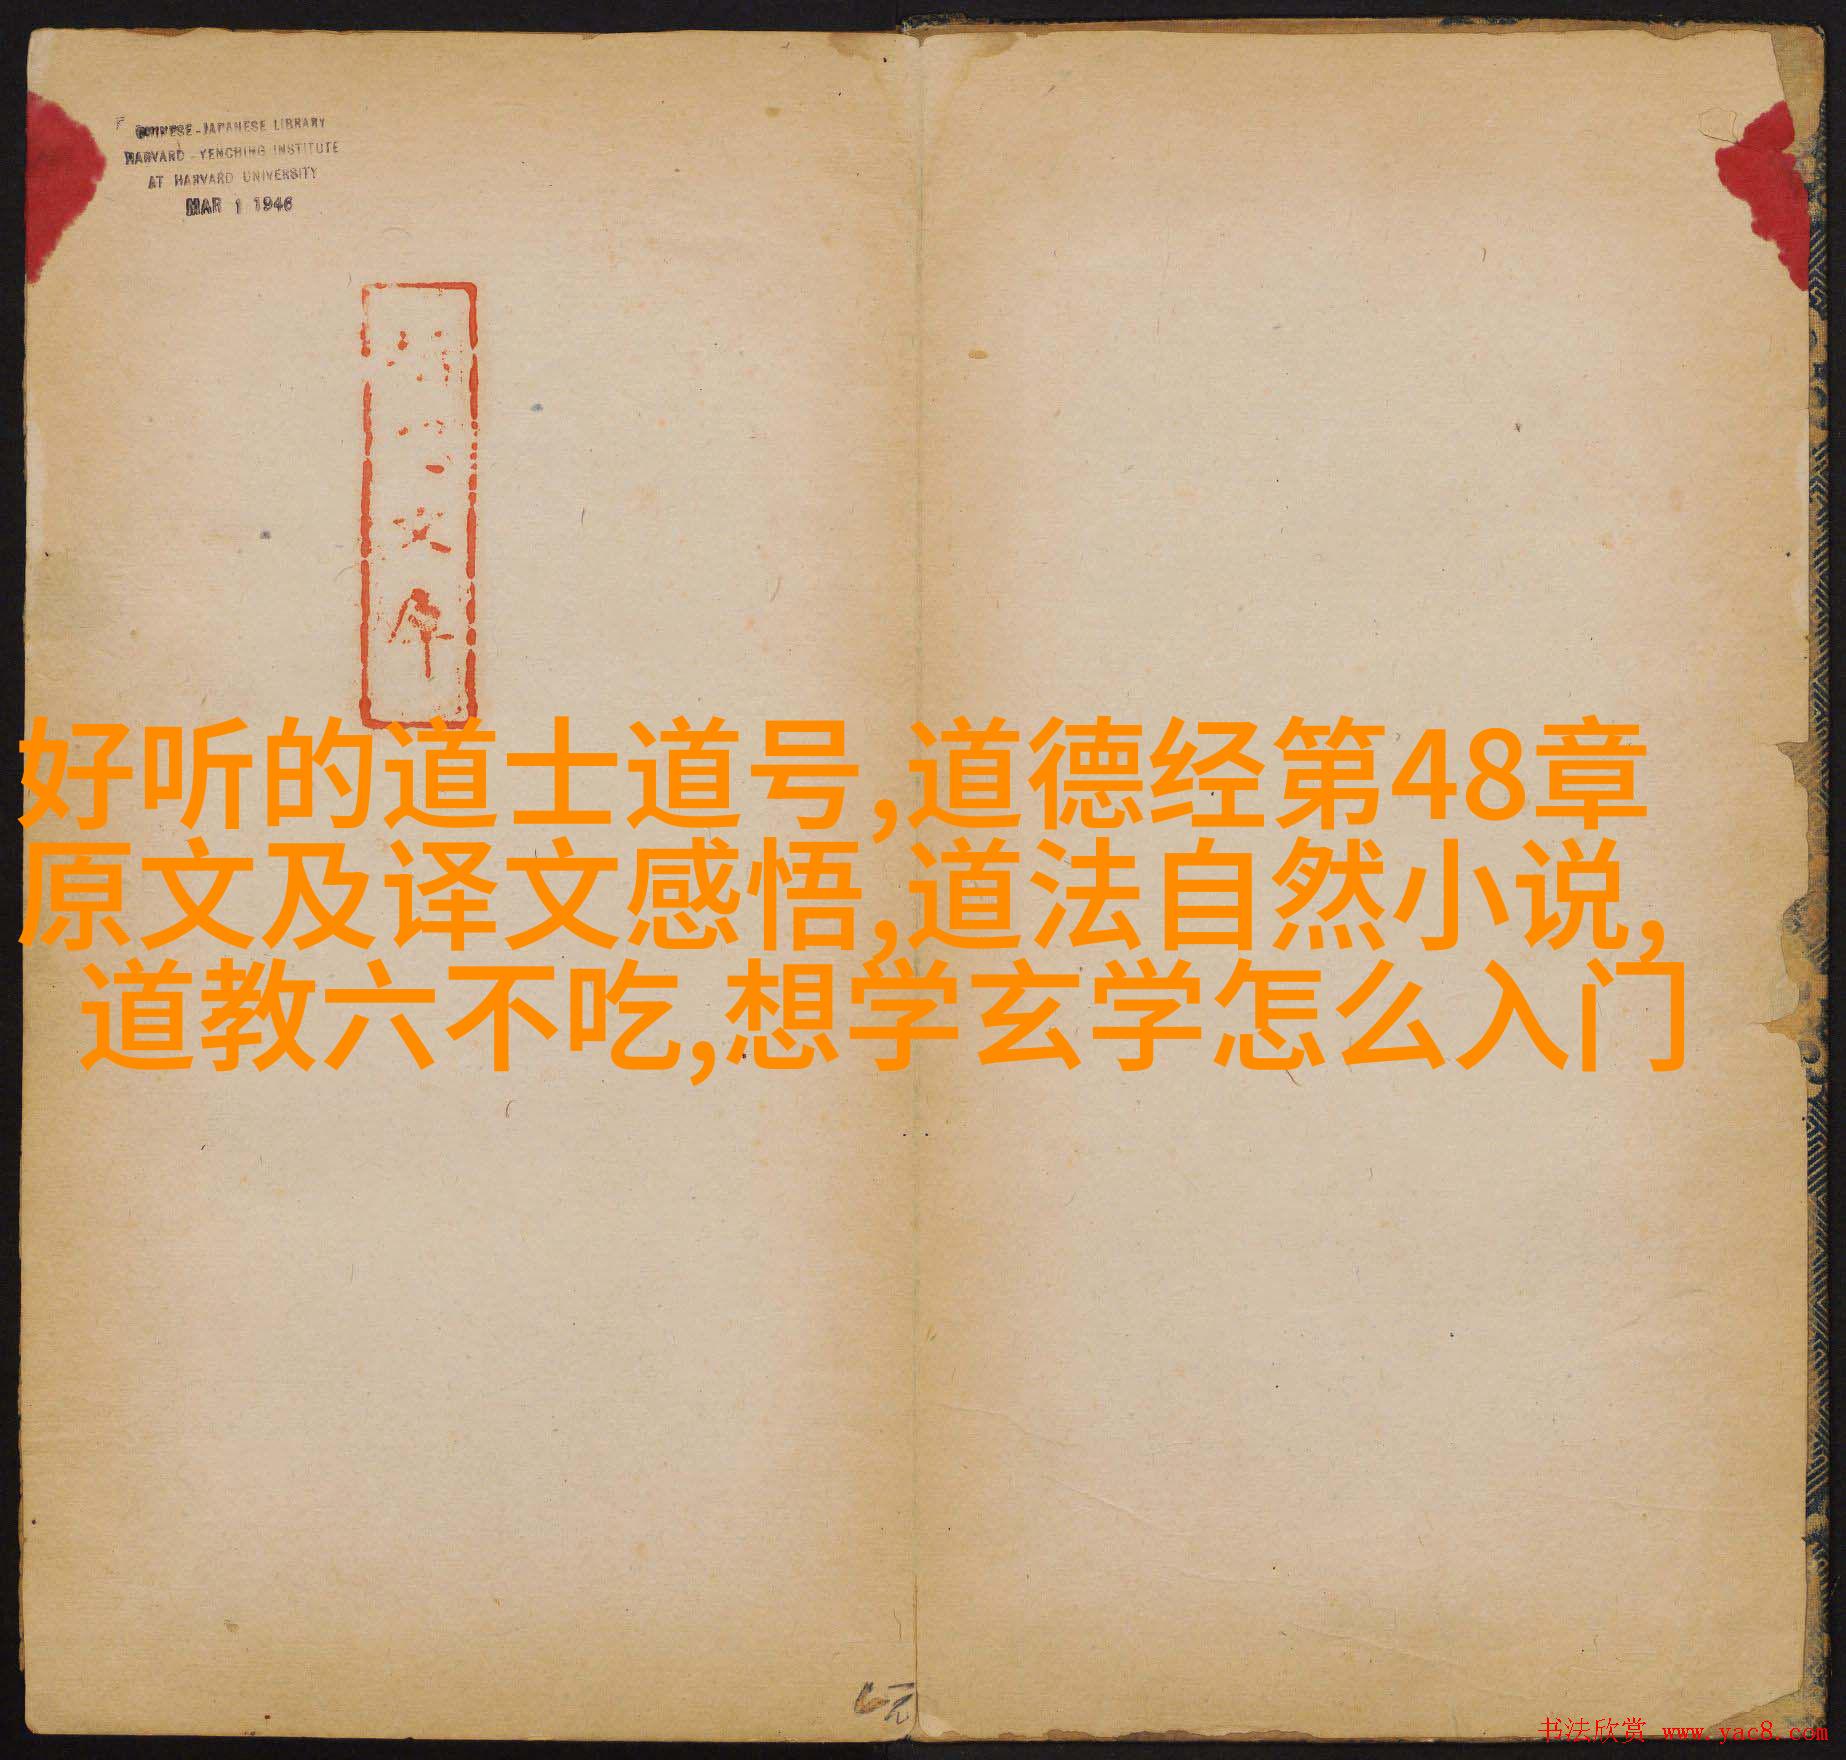 CHINESE-JAPANESE LIBRARY
HARVARD-YENCHING INSTITUTE
AT HARVARD UNIVERSITY
MAR 1 1946
好听的道士道号,道德经第48章
原文及译文感悟,道法自然小说,
道教六不吃,想学玄学怎么入门
元
书法欣赏 www.yac8.com